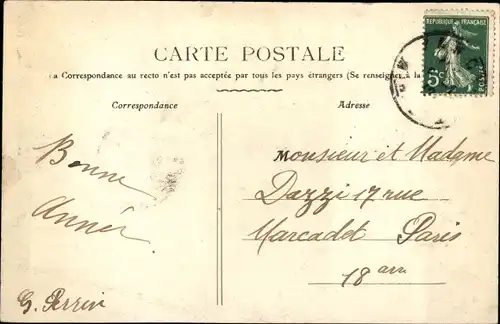 CARTE POSTALE
La Correspondance au recto n'est pas acceptée par tous les pays étrangers (Se renseigner à la
Correspondance
Adresse
REPUBLIQUE FRANÇAISE
5c
POSTES
Bonne
Année
G. Perrin
Monsieur et Madame
Dazzi 17 rue
Marcadet Paris
18 arr